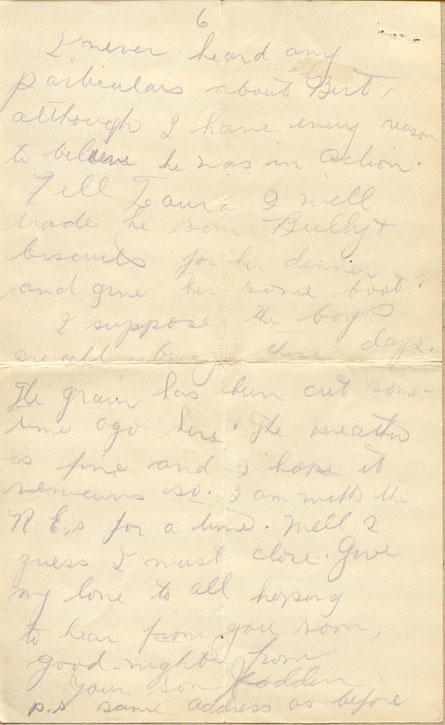 6
I never heard any
particulars about Bert,
although I have every reason
to believe he was in action.
Tell Laura I will
trade he som Bully +
biscuits for her dinner
and give her some boot.
I suppose the boys
are all busy these days.
The grain has been cut some-
time ago here. The weather
is fine and I hope it
remains so. I am with the
R.E,s for a time. Well I
guess I must close. Give
my love to all hoping
to hear from you soon,
good-night from
Your son
P.S same address as before